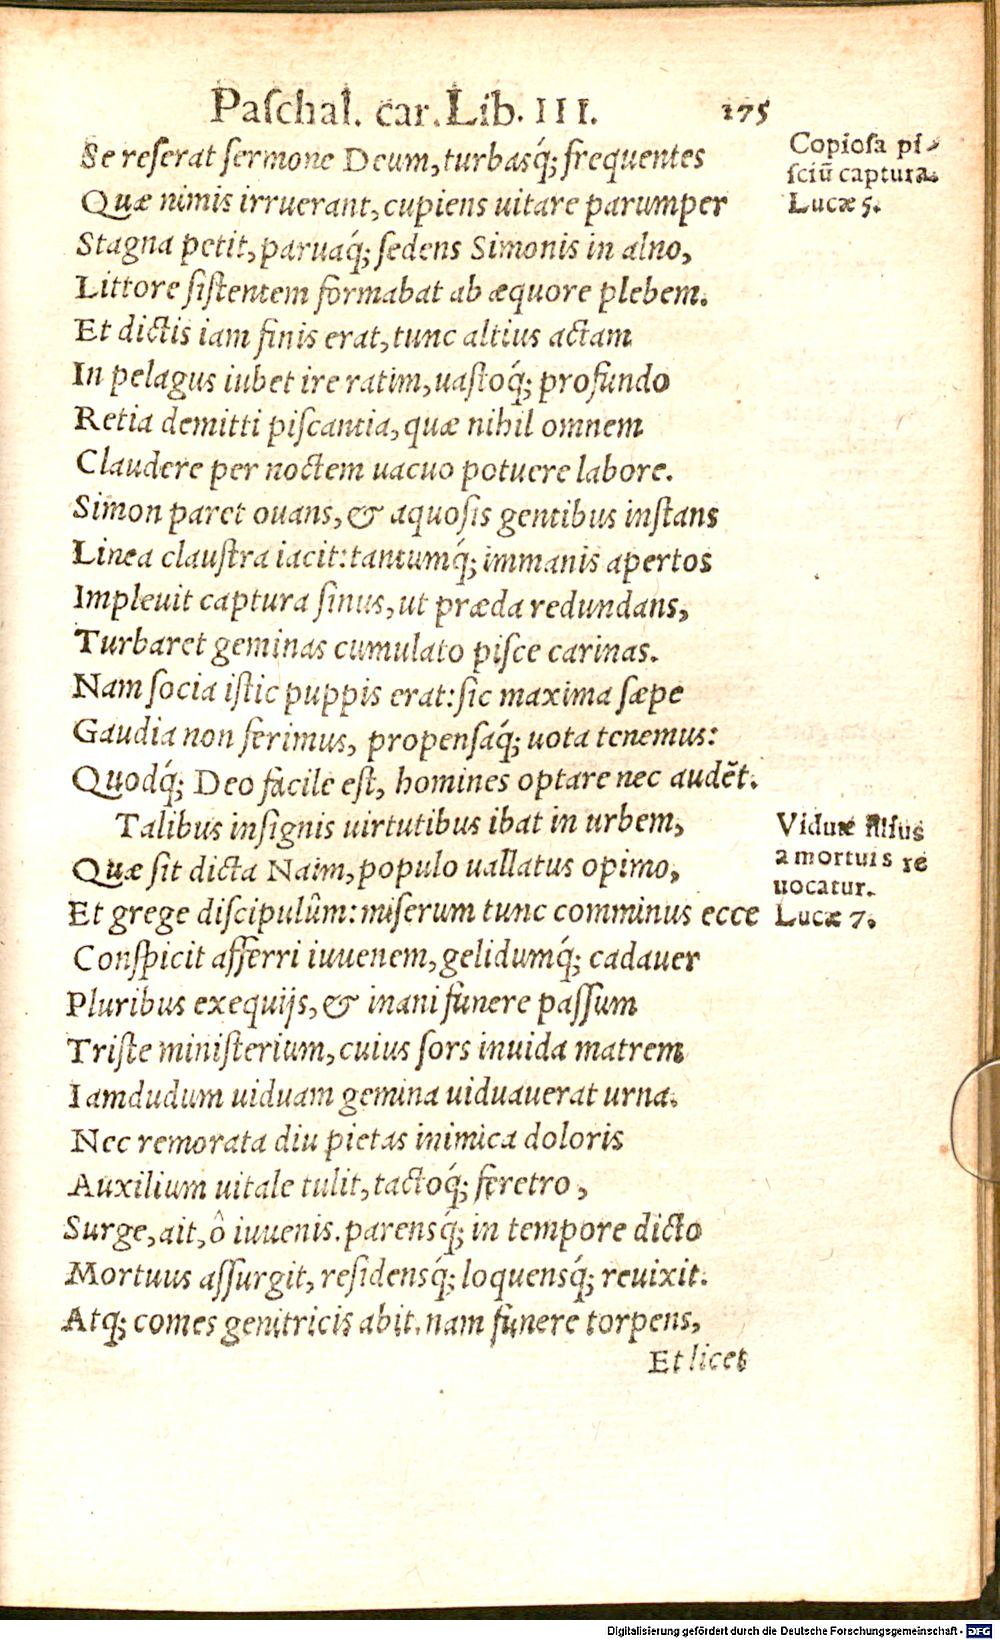 Paſchal. car. Lib. III. 175
Se reſerat ſermone Deum, turbasq́; frequentes
Quæ nimis irruerant, cupiens uitare parumper
Stagna petit, paruaq́; ſedens Simonis in alno,
Littore ſiſtentem formabat ab æquore plebem.
Et dictis iam finis erat, tunc altius actam
In pelagus iubet ire ratim, uaſtoq́; profundo
Retia demitti piſcantia, quæ nihil omnem
Claudere per noctem uacuo potuere labore.
Simon paret ouans, & aquoſis gentibus inſtans
Linea clauſtra iacit: tantumq́; immanis apertos
Impleuit captura ſinus, ut præda redundans,
Turbaret geminas cumulato piſce carinas.
Nam ſocia iſtic puppis erat: ſic maxima ſæpe
Gaudia non ferimus, propenſaq́; uota tenemus:
Quodq́; Deo facile eſt, homines optare nec audēt.
Talibus inſignis uirtutibus ibat in urbem,
Quæ ſit dicta Naim, populo uallatus opimo,
Et grege diſcipulûm: miſerum tunc comminus ecce
Conſpicit afferri iuuenem, gelidumq́; cadauer
Pluribus exequijs, & inani funere paſſum
Triſte miniſterium, cuius ſors inuida matrem
Iamdudum uiduam gemina uiduauerat urna.
Nec remorata diu pietas inimica doloris
Auxilium uitale tulit, tactoq́; feretro,
Surge, ait, ô iuuenis. parensq́; in tempore dicto
Mortuus aſſurgit, reſidensq́; loquensq́; reuixit.
Atq; comes genitricis abit. nam funere torpens,
Et licet
Copioſa pi-
ſciū captura.
Lucæ 5.
Viduæ filius
a mortuis re
uocatur.
Lucæ 7.
Digitalisierung gefördert durch die Deutsche Forschungsgemeinschaft - DFG